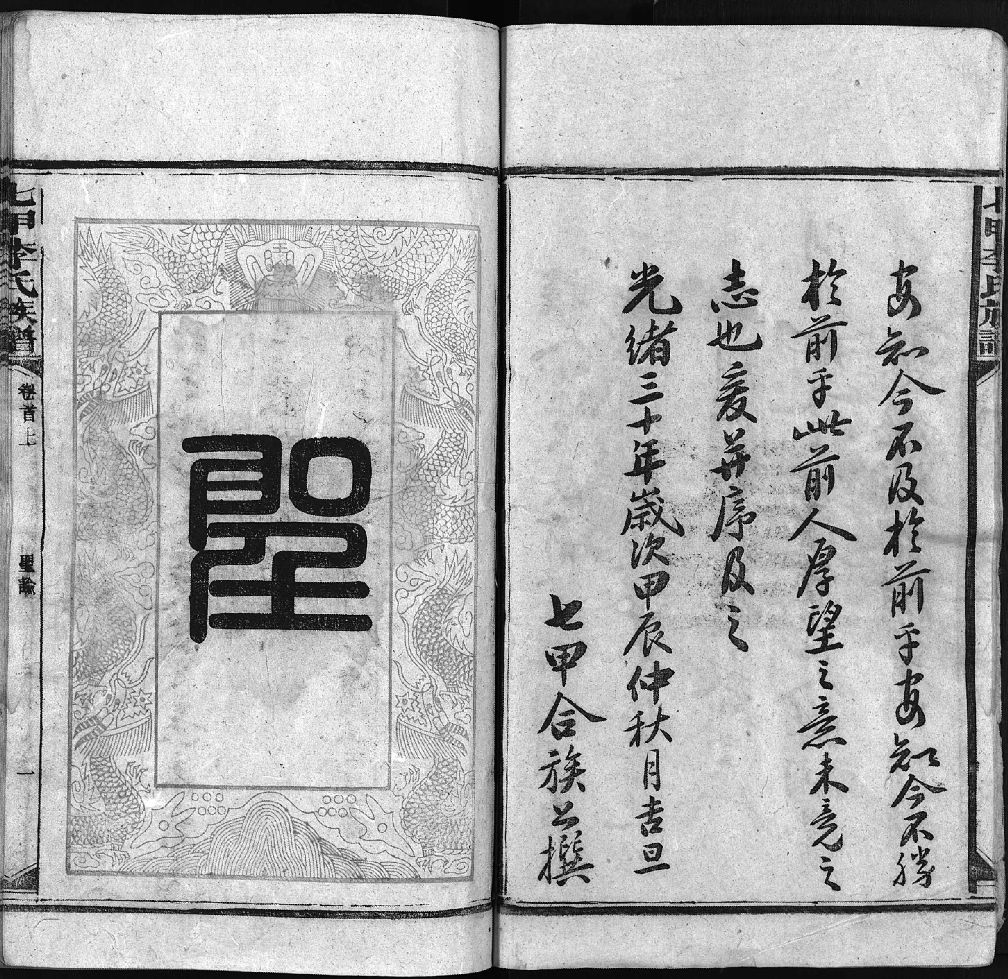 七甲李氏族譜
安知今不及於前乎安知今不勝
於前乎此前人厚望之意未竟之
志也爰并序及之
光緒三十年歲次甲辰仲秋月吉旦
七甲合族公撰
聖
七甲李氏族譜
卷首上
聖諭
一